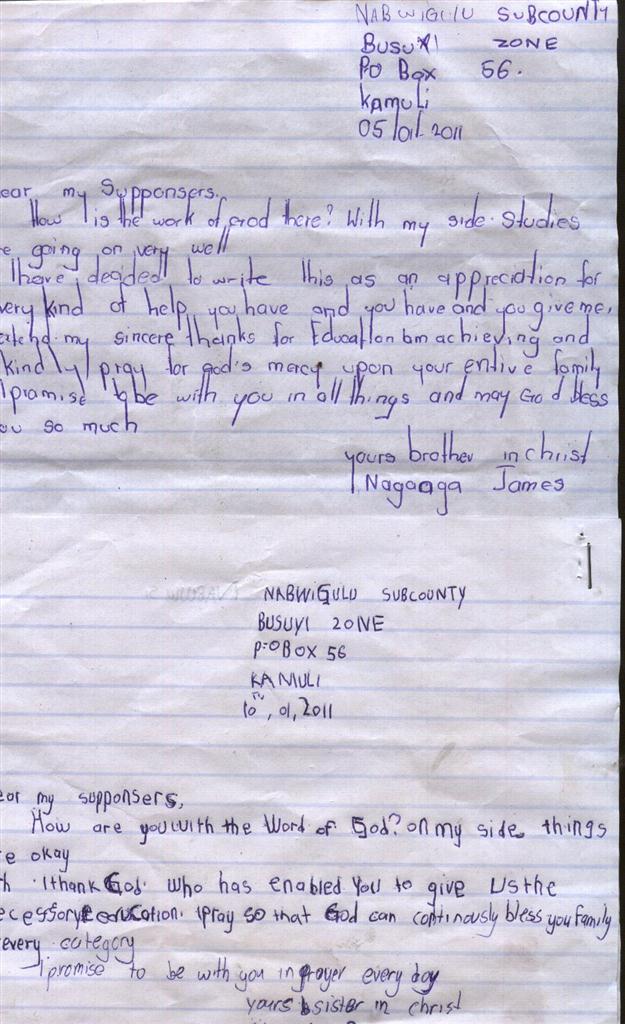 NABWIGULU SUBCOUNTY
BUSUYI ZONE
PO Box 56.
Kamuli
05/01/2011
ear my Supponsers.
How is the work of God there? With my side studies
e going on very well
I have decided to write this as an appreciation for
very kind of help you have and you have and you give me,
my sincere thanks for Education am achieving and
kindly I pray for god's mercy upon your entire family
I promise to be with you in all things and may God bless
ou so much
yours brother in christ
Nagaaga James
NABWIGULU SUBCOUNTY
BUSUYI ZONE
P.O BOX 56
KAMULI
10th, 01, 2011
ear my supponsers,
How are you with the Word of God? on my side things
e okay
h I thank God who has enabled you to give us the
ecessary education. I pray so that God can continously bless you family
every category
I promise to be with you in prayer every day
yours sister in christ